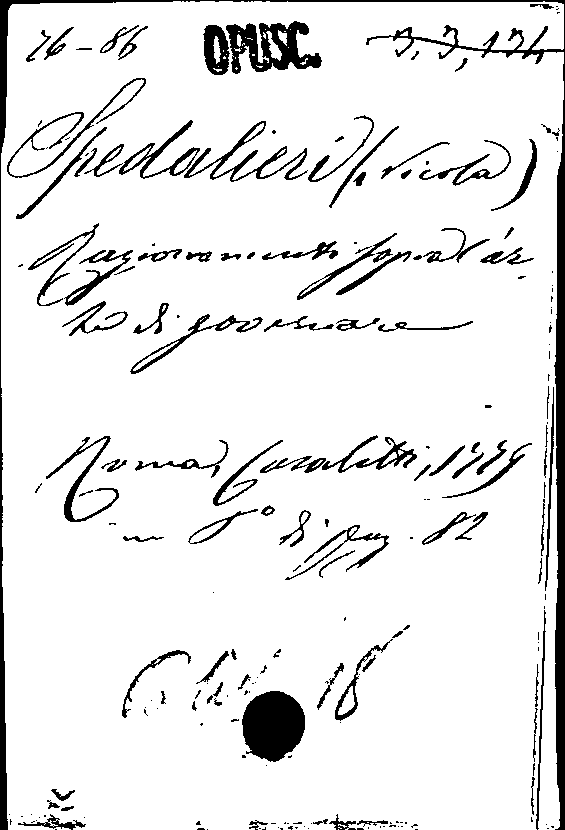 26-86 OPUSC. 3, 3, 134
Spedalieri (, Nicola)
Ragionamenti sopra l'ar-
te di governare
Roma, Casaletti, 1779
in 8° di pag. 82
18